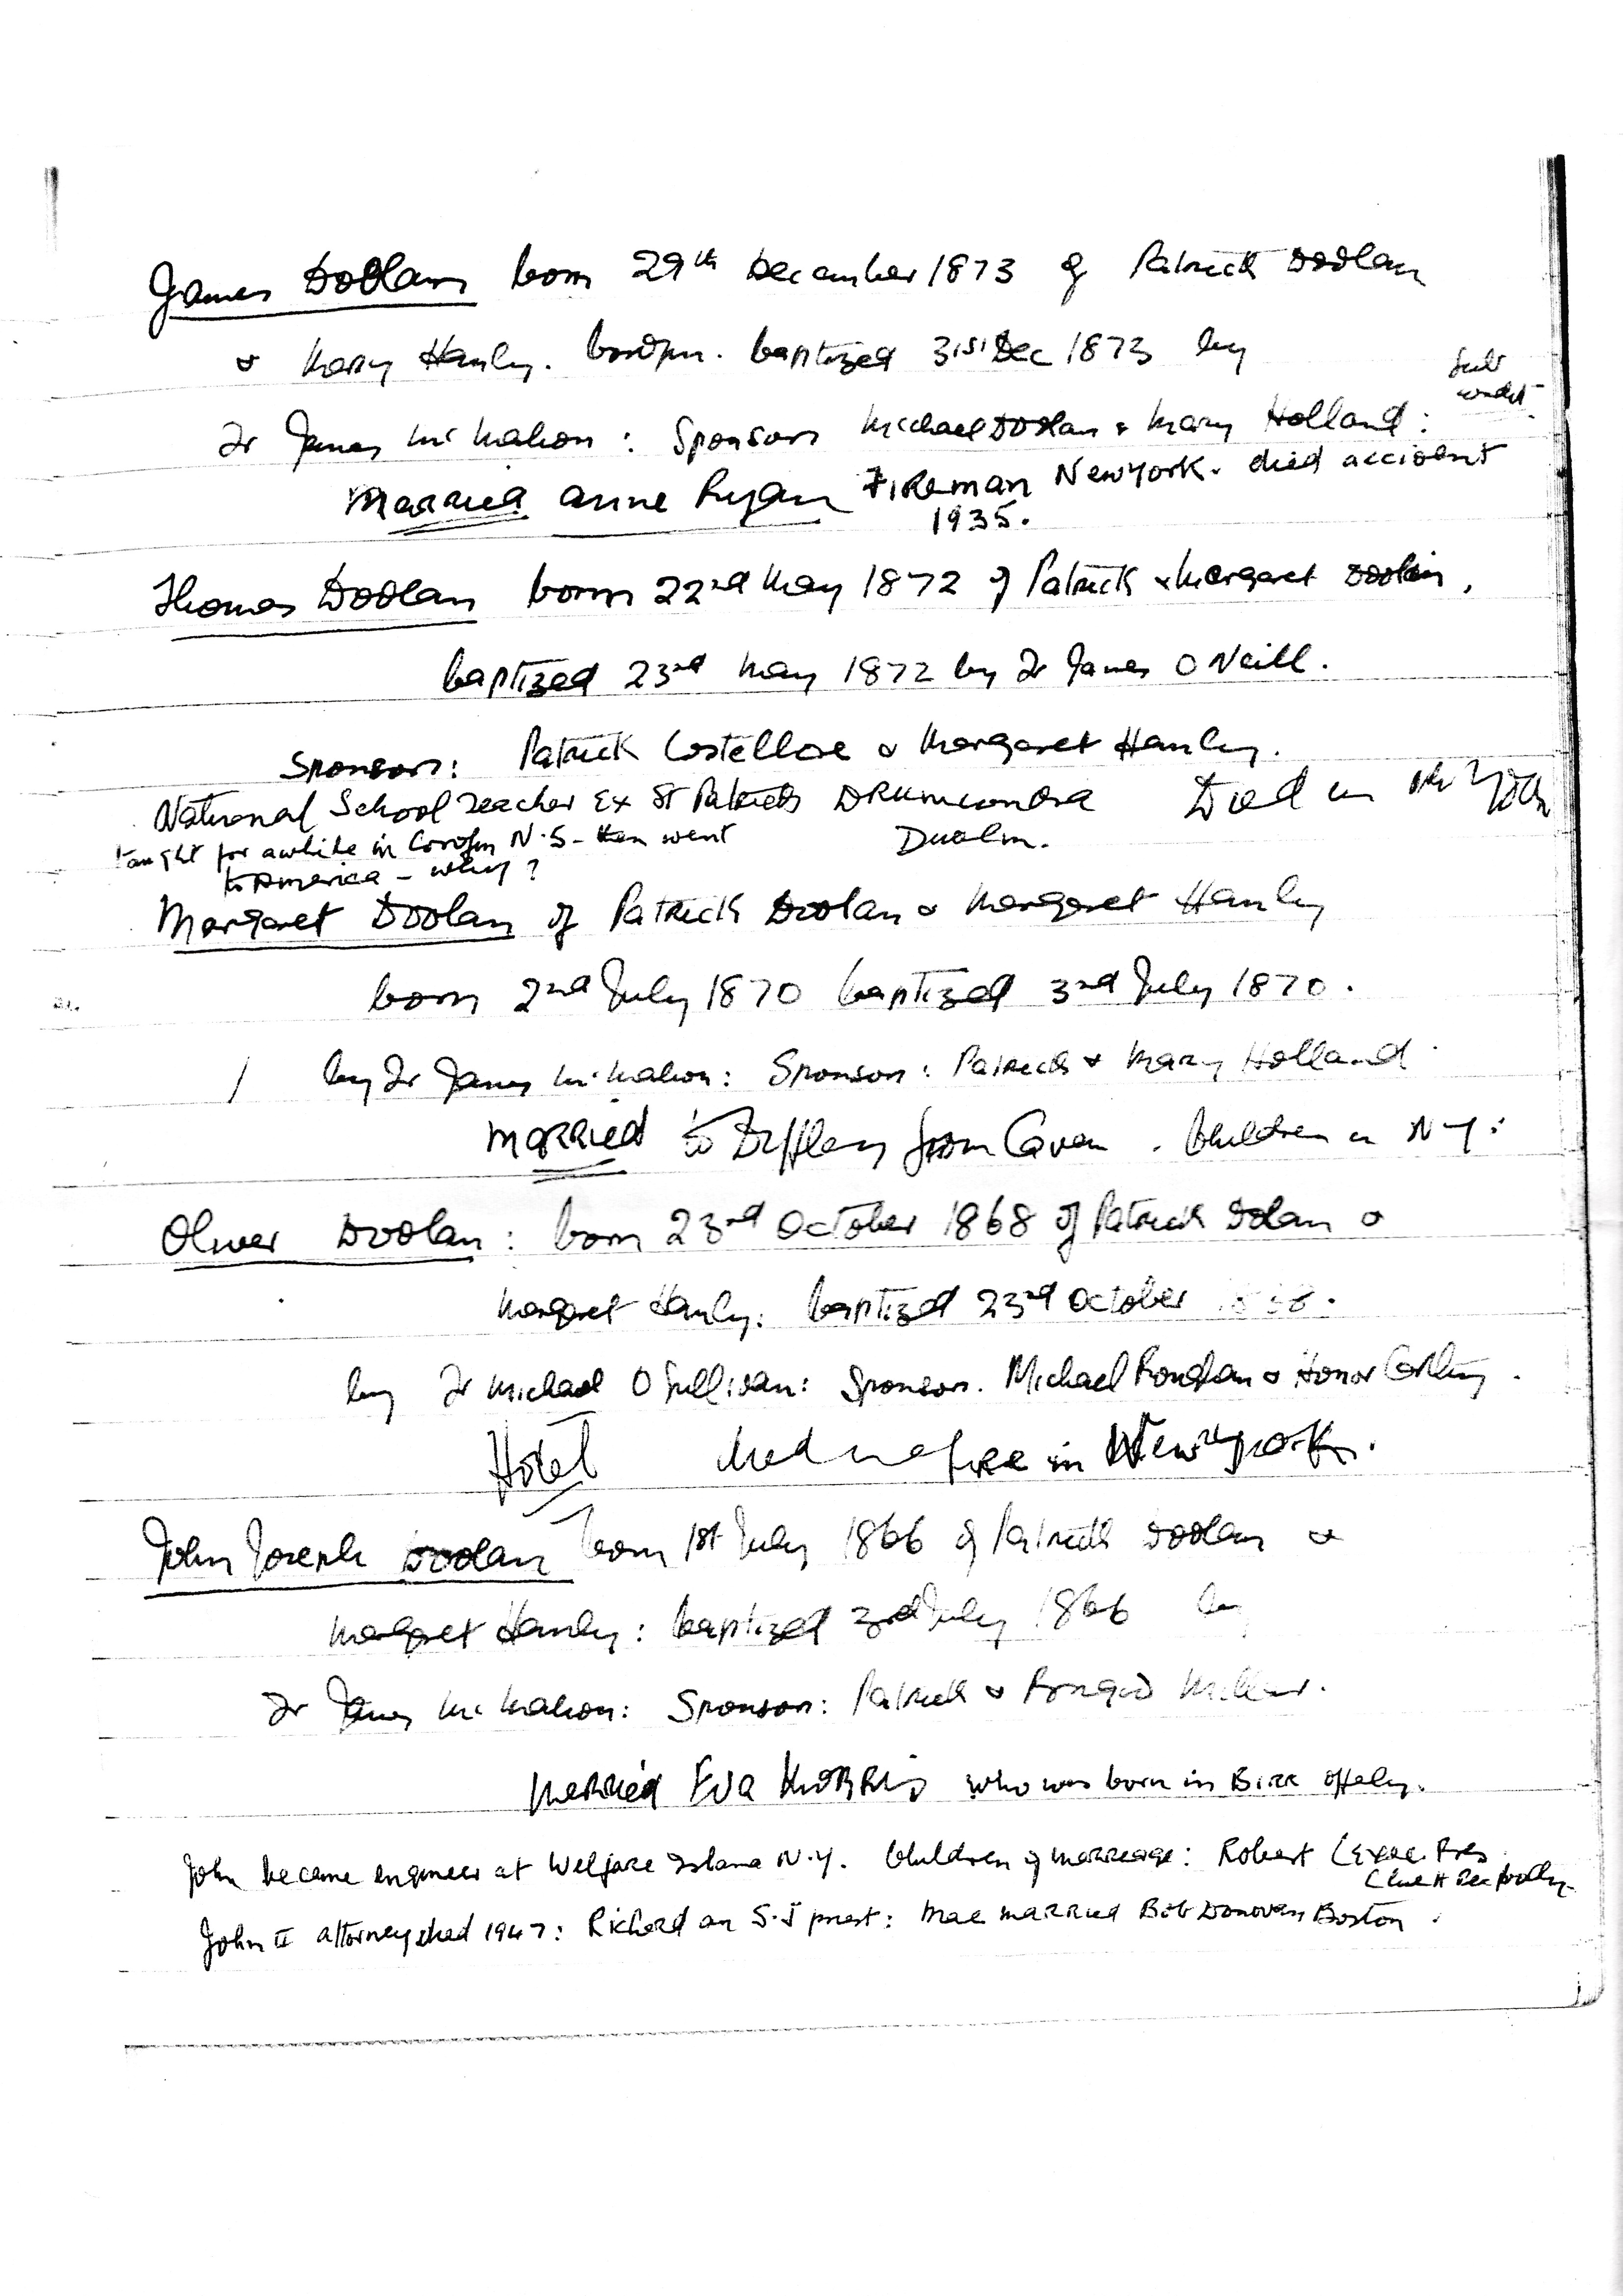 James Doolan born 29th December 1873 of Patrick Doolan
& Mary Hanly. Corofin. baptized 31st Dec 1873 by
Fr James McMahon: Sponsors Michael Doolan & Mary Holland:
Married Anne Ryan Fireman New York. died accident
1935.
Thomas Doolan born 22nd May 1872 of Patrick & Margaret Doolan,
baptized 23rd May 1872 by Fr James O Neill.
Sponsors: Patrick Costelloe & Margaret Hanly.
National School Teacher Ex St Patricks DRUMCONDRA Died in New York
Dublin.
taught for awhile in Corofin N.S - then went
to America - why?
Margaret Doolan of Patrick Doolan & Margaret Hanly
born 2nd July 1870 baptized 3rd July 1870.
by Fr James McMahon: Sponsors: Patrick & Mary Holland
Married to from Cavan. Children in N-Y:
Oliver Doolan: born 23rd October 1868 of Patrick Dolan &
Margaret Hanly: baptized 23rd October 1868.
by Fr Michael O Sullivan: Sponsors. Michael & Honor
Hotel fire in New York.
John Joseph Doolan born 1st July 1866 of Patrick Doolan &
Margaret Hanly: baptized 3rd July 1866 by
Fr James McMahon: Sponsors: Patrick &
Married Eva Morris who was born in Birr Offaly.
John became engineer at Welfare Island N.Y. Children of marriage: Robert (Exec. Pres
John II attorney died 1947: Richard an S.J priest: Mae married Bob Donovan Boston.